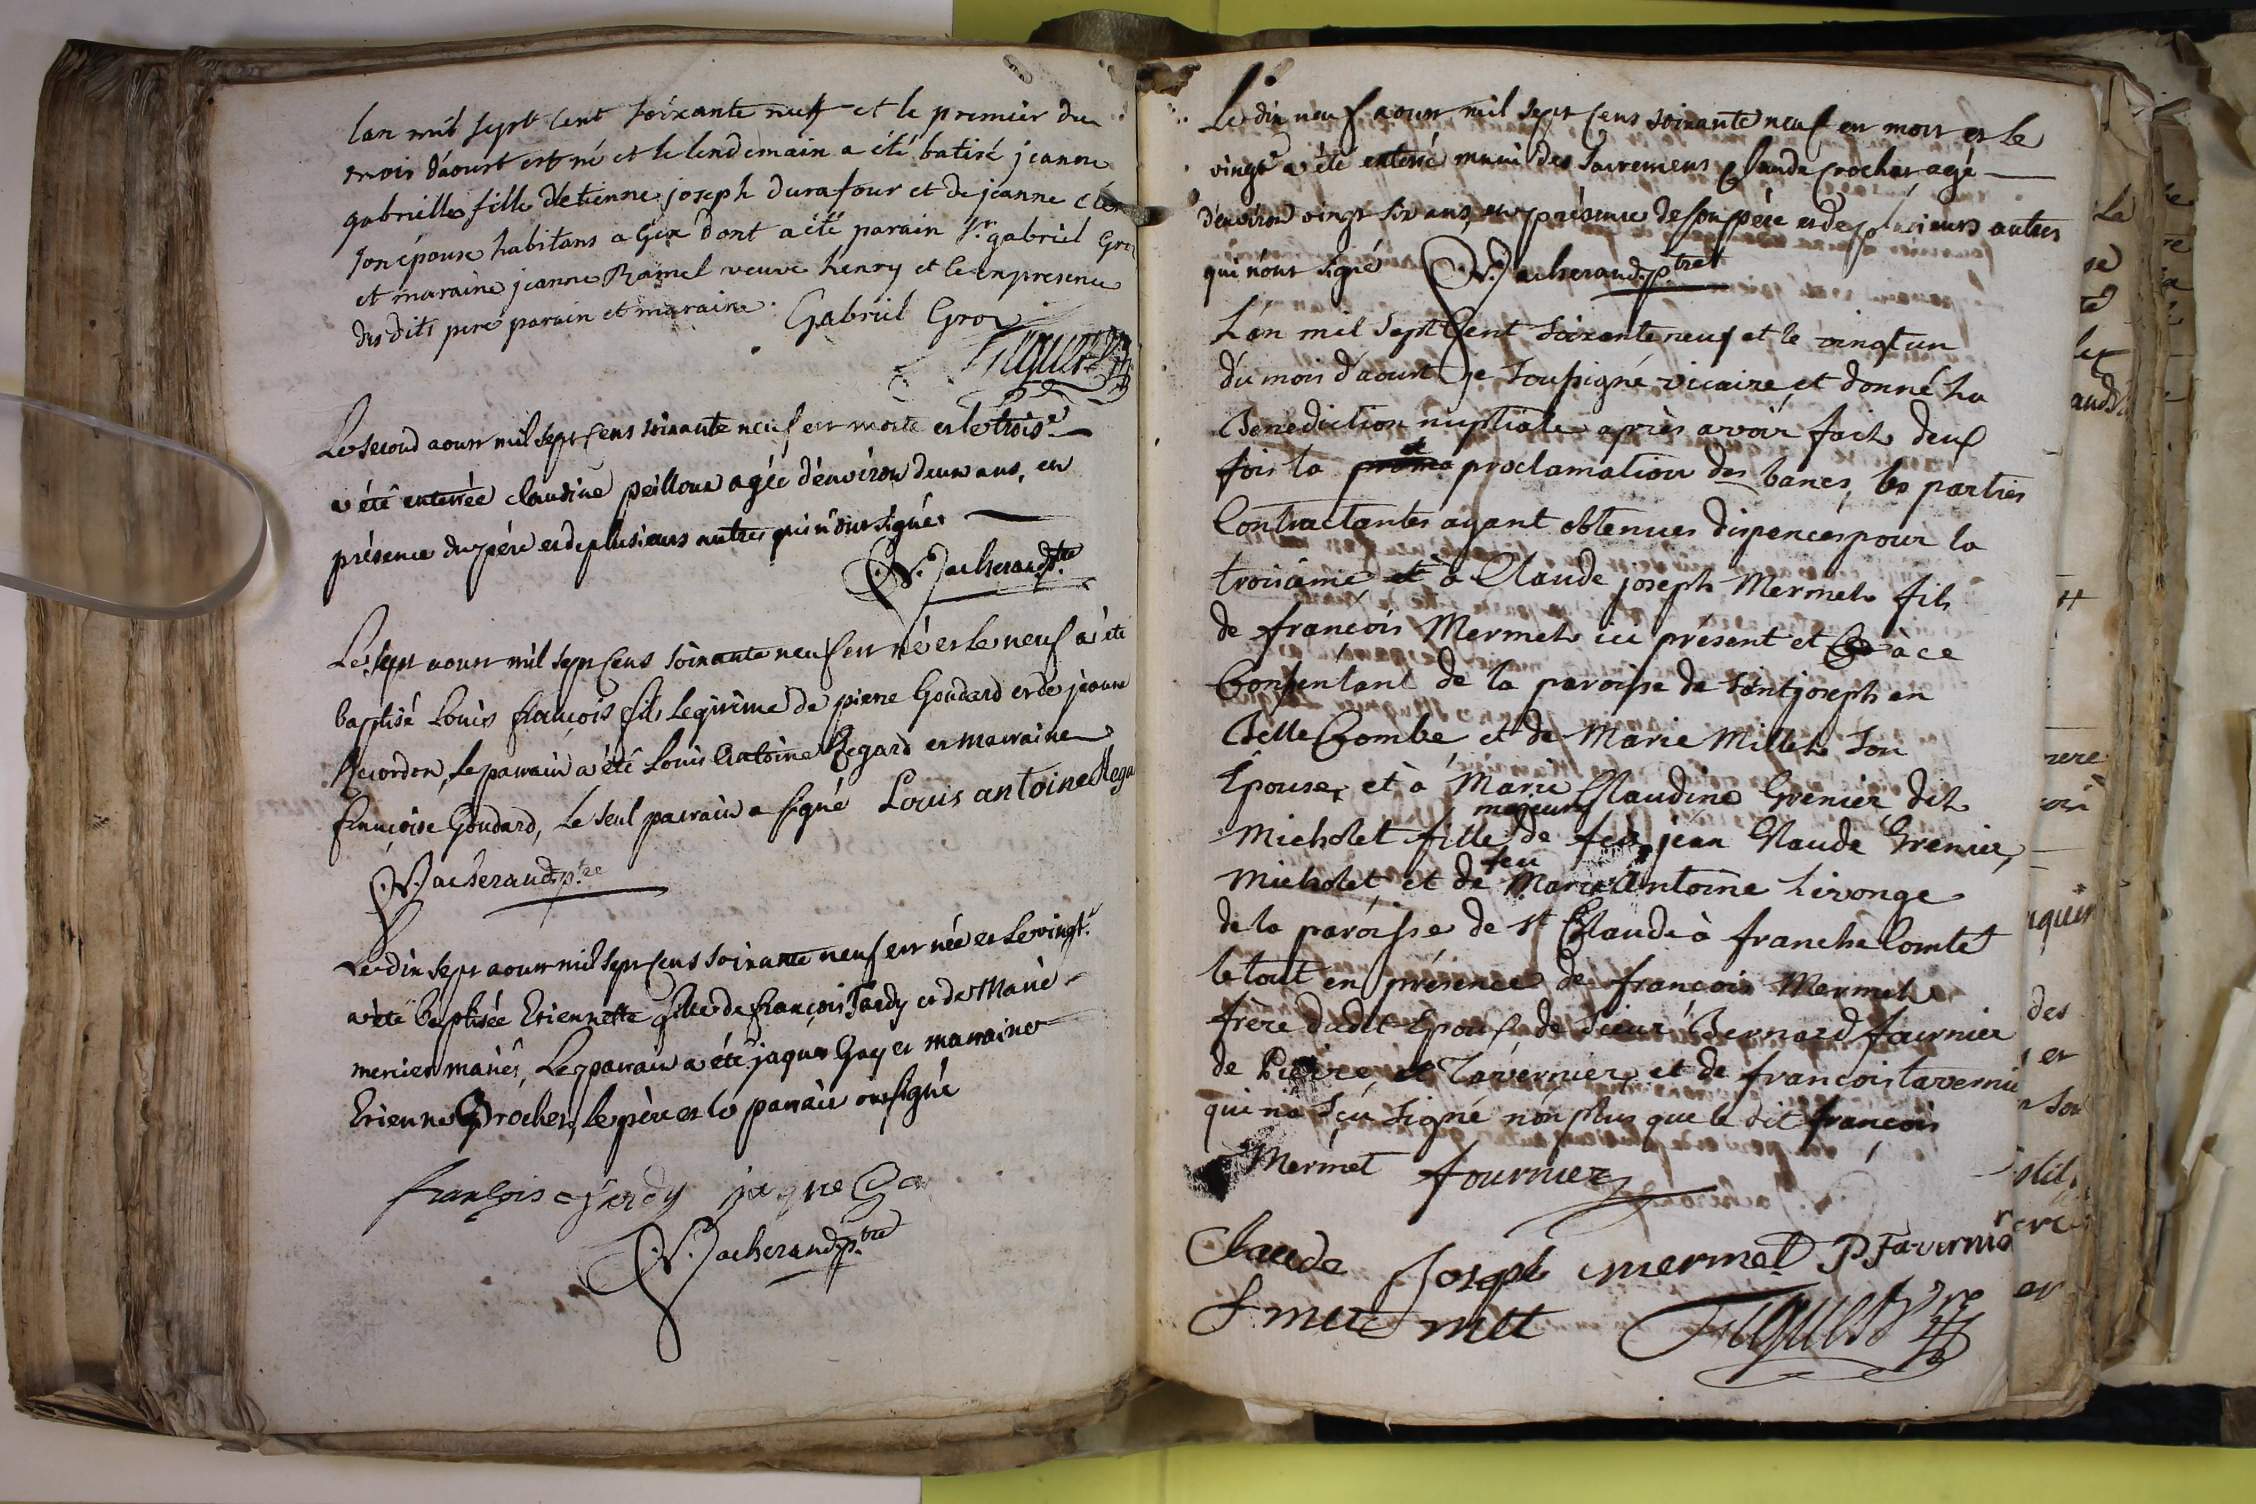 lan mil sept cent soixante neuf et le premier du
mois d'aourt est né et le lendemain a été batisé jeanne
gabrielle fille d'etienne joseph durafour et de jeanne
son épouse habitans a Gex dont a été parain Sr gabriel Gros
et maraine jeanne Ramel veuve henry et le en presence
des dits pere parain et maraine. Gabriel Gros
Le second aoust mil sept cens soixante neuf est morte et le troise
a été enterrée claudine peilloux agée d'énviron deux ans, en
présence du père et de plusieurs autres qui n'ont signé.
V. Jacheraud ptre
Le sept aoust mil sept cens soixante neuf est né et le neuf a été
baptisé Louis françois fils legitime de pierre Goudard et de jeanne
Recordon, Le parrain a été Louis Antoine Regard et marraine
françoise Goudard, Le seul parrain a signé Louis antoine Rega
V. Jacheraud ptre
Le dix sept aoust mil sept cens soixante neuf est née et le vingt.
a été baptisée Etiennette fille de françois Tardy et de Marie
mercier mariés, Le parrain a été jaques Gay et marraine
Etienne Brochet, le père et le parrain ont signé
françois Tardy jaque Ga
V. Jacheraud ptre
Le dix neuf aoust mil sept cens soixante neuf est mort et le
vingte a été enterré muni des sacremens Claude Crochat, agé
d'énviron vingt six ans, en présence de son père et de plusieurs autres
qui n'ont signé V. Jacheraud ptre
L'an mil sept Cent soixante neuf et le vingt un
du mois d'aourt je soussigné vicaire, et donné la
Bénédiction nuptiale après avoir fait deux
fois la proclamation des bancs, les parties
Contractantes ayant obtenues dispences pour la
troisième à Claude joseph Mermet fils
de françois Mermet ici présent et à ce
Consentant de la paroisse de saint joseph en
Belle Combe et de Marie Millet son
Epouse, et à Marie Claudine Grenier dit
Micholet fille majeure de feu jean Claude Grenier,
Micholet, et de feu Marie Antoine Livonge
de la paroisse de St Claude à franche Comté
le tout en présence de françois Mermet
frère dudit Epoux, de Sieur Bernard fournier
de Pierre Tavernier, et de françois tavernie
qui n'a sçu signé non plus que le dit françois
Mermet fournier
Claude Joseph mermet P Tavernier
f. mermett